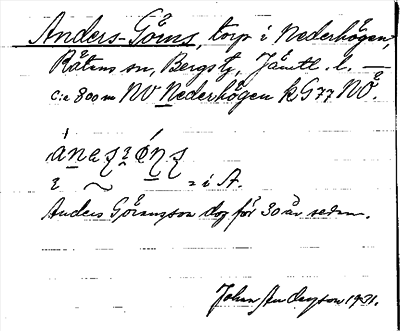 Anders-Görns, torp i Nederhögen,
Råtans sn, Bergs tg, Jämtl. l. —
C:a 800 m NV Nederhögen k G77 NÖ.
i A.
Anders Göransson dog för 30 år sedan.
John Andersson 1931.